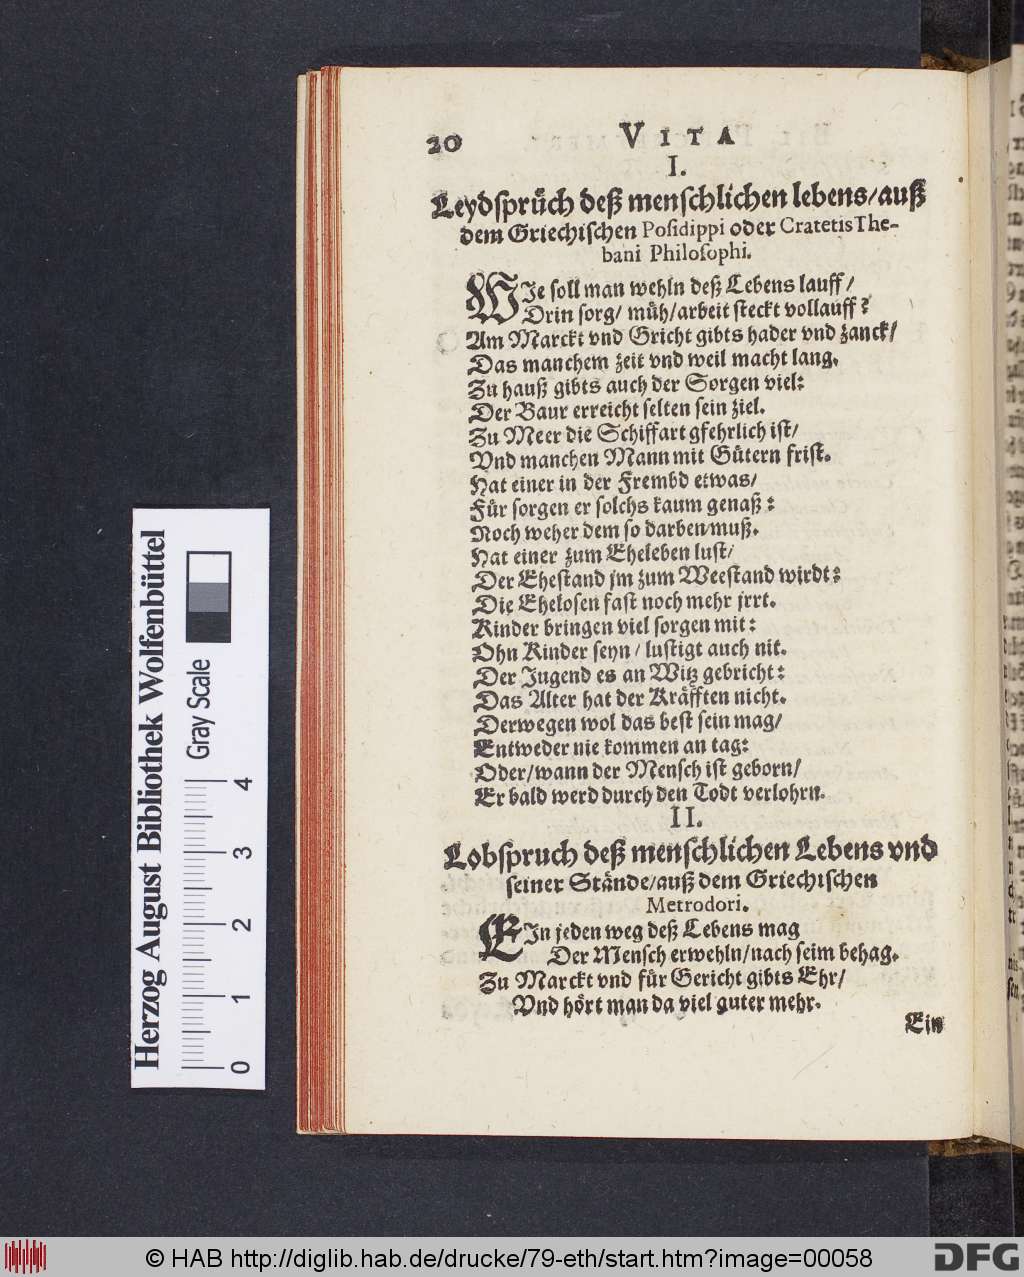 20 VITA
I.
Leydsprüch deß menschlichen lebens/auß
dem Griechischen Posidippi oder Cratetis The-
bani Philosophi.
WIe soll man wehln deß Lebens lauff/
Drin sorg/ müh/arbeit steckt vollauff?
Am Marckt vnd Gricht gibts hader vnd zanck/
Das manchem zeit vnd weil macht lang.
Zu hauß gibts auch der Sorgen viel:
Der Baur erreicht selten sein ziel.
Zu Meer die Schiffart gfehrlich ist/
Vnd manchen Mann mit Gütern frist.
Hat einer in der Frembd etwas/
Für sorgen er solchs kaum genaß:
Noch weher dem so darben muß.
Hat einer zum Eheleben lust/
Der Ehestand jm zum Weestand wirdt:
Die Ehelosen fast noch mehr jrrt.
Kinder bringen viel sorgen mit:
Ohn Kinder seyn/ lustigt auch nit.
Der Jugend es an Witz gebricht:
Das Alter hat der Kräfften nicht.
Derwegen wol das best sein mag/
Entweder nie kommen an tag:
Oder/wann der Mensch ist geborn/
Er bald werd durch den Todt verlohrn.
II.
Lobspruch deß menschlichen Lebens vnd
seiner Stände/auß dem Griechischen
Metrodori.
EIn jeden weg deß Lebens mag
Der Mensch erwehln/nach seim behag.
Zu Marckt vnd für Gericht gibts Ehr/
Vnd hört man da viel guter mehr.
Ein
Herzog August Bibliothek Wolfenbüttel
Gray Scale
0 1 2 3 4
© HAB http://diglib.hab.de/drucke/79-eth/start.htm?image=00058
DFG